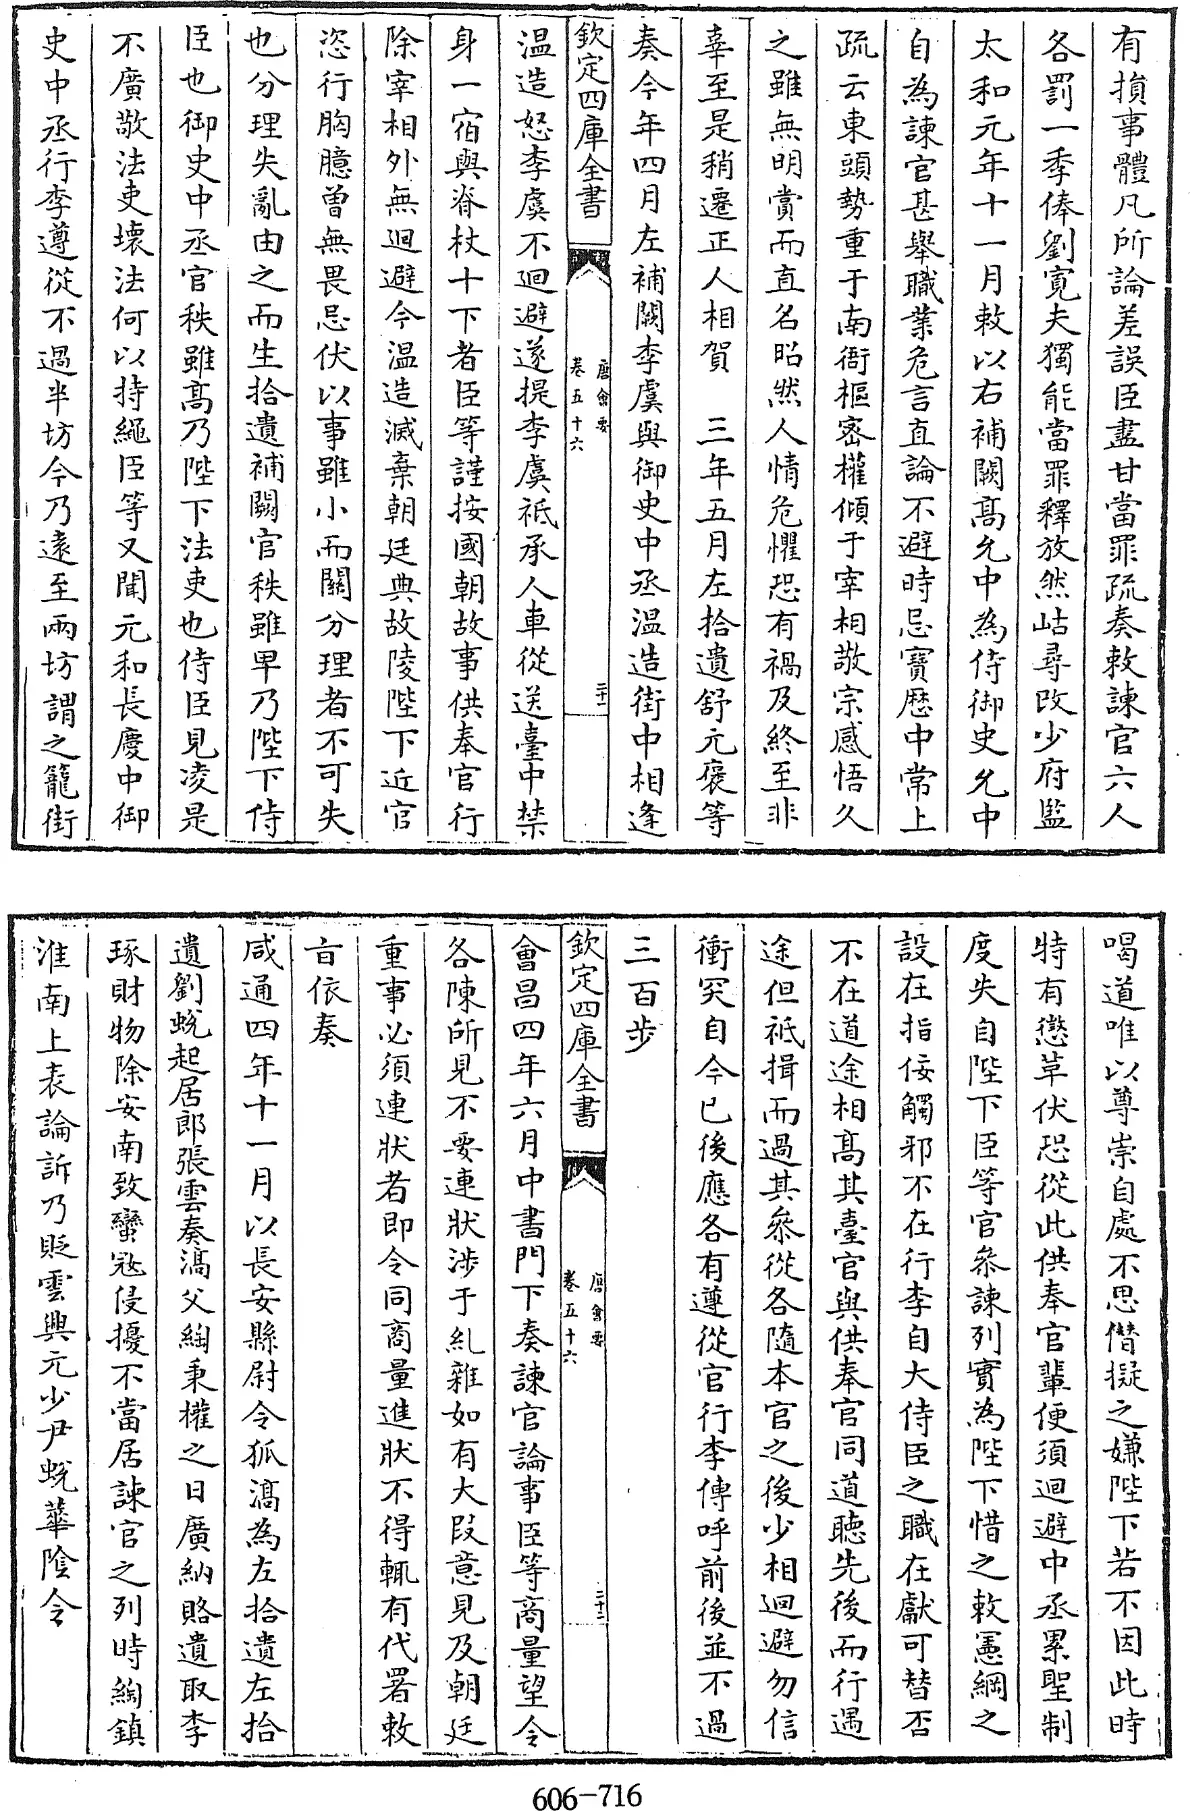 有損事體凡所論差誤臣盡甘當罪疏奏敕諫官六人
各罰一季俸劉寛夫獨能當罪釋放然岵尋改少府監
太和元年十一月敕以右補闕髙允中為侍御史允中
自為諫官甚舉職業危言直論不避時忌寳歴中常上
疏云東頭勢重于南衙樞密權傾于宰相敬宗感悟久
之雖無明賞而直名昭然人情危懼恐有禍及終至非
辜至是稍遷正人相賀　三年五月左拾遺舒元褒等
奏今年四月左補闕李虞與御史中丞温造街中相逢
欽定四庫全書
唐會要
卷五十六
二十一
温造怒李虞不迴避遂提李虞祗承人車從送臺中禁
身一宿與脊杖十下者臣等謹按國朝故事供奉官行
除宰相外無迴避今温造滅棄朝廷典故陵陛下近官
恣行胸臆曽無畏忌伏以事雖小而關分理者不可失
也分理失亂由之而生拾遺補闕官秩雖卑乃陛下侍
臣也御史中丞官秩雖髙乃陛下法吏也侍臣見凌是
不廣敬法吏壊法何以持繩臣等又聞元和長慶中御
史中丞行李遵從不過半坊今乃逺至兩坊謂之籠街
喝道唯以尊崇自處不思僭擬之嫌陛下若不因此時
特有懲革伏恐從此供奉官輩便須迴避中丞累聖制
度失自陛下臣等官叅諫列實為陛下惜之敕憲綱之
設在指佞觸邪不在行李自大侍臣之職在獻可替否
不在道途相髙其臺官與供奉官同道聴先後而行遇
途但祗揖而過其叅從各隨本官之後少相迴避勿信
衝突自今已後應各有遵從官行李傳呼前後並不過
三百步
欽定四庫全書
唐會要
卷五十六
二十二
會昌四年六月中書門下奏諫官論事臣等商量望令
各陳所見不要連狀涉于糺雜如有大段意見及朝廷
重事必須連狀者即令同商量進狀不得輒有代署敕
㫖依奏
咸通四年十一月以長安縣尉令狐滈為左拾遺左拾
遺劉蛻起居郎張雲奏滈父綯秉權之日廣納賂遺取李
琢財物除安南致蠻冦侵擾不當居諫官之列時綯鎮
淮南上表論訴乃貶雲興元少尹蛻華陰令
606-716